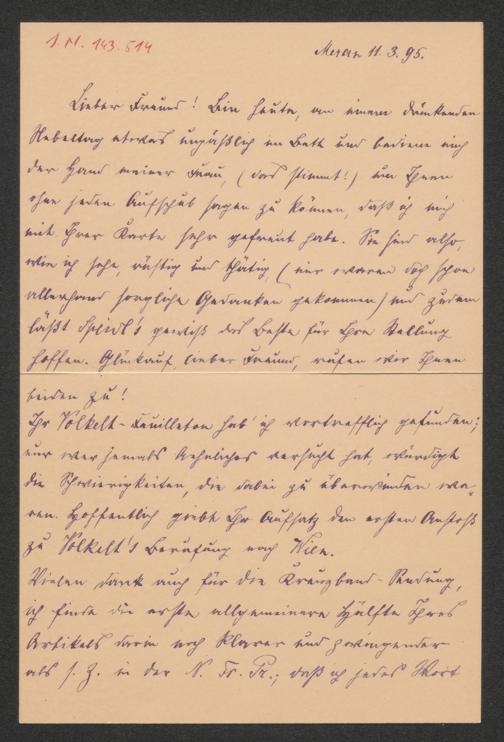 I. N. 143.514
Meran 11. 3. 95.
Lieber Freund! Bin heute, an einem dämkenden
Nebeltag etwas unpäßlich im Bett und bediene mich
der Hand meiner Frau, (das stimmt!) um Ihnen
ohne jeden Aufschub sagen zu können, daß ich mich
mit Ihrer Karte sehr gefreut habe. Sie sind also,
wie ich sehe, rüstig und thätig, (mir waren doch schon
allerhand sorgliche Gedanken gekommen) und zudem
läßt Speidl's gewiß das Beste für Ihre Stellung
hoffen. Glückauf, lieber Freund, rufen wir Ihnen
beiden zu!
Ihr Volkelt-Feuilleton hab' ich vortrefflich gefunden;
nur wer jemals Aehnliches versucht hat, würdigt
die Schwierigkeiten, die dabei zu überwinden wa-
ren. Hoffentlich giebt Ihr Aufsatz den ersten Anstoß
zu Volkelt's Berufung nach Wien.
Vielen Dank auch für die Kreuzband-Sendung,
ich finde die erste allgemeinere Hälfte Ihres
Artikels darin noch klarer und zwingender
als s. Z. in der N. Fr. Pr.; daß ich jedes Wort